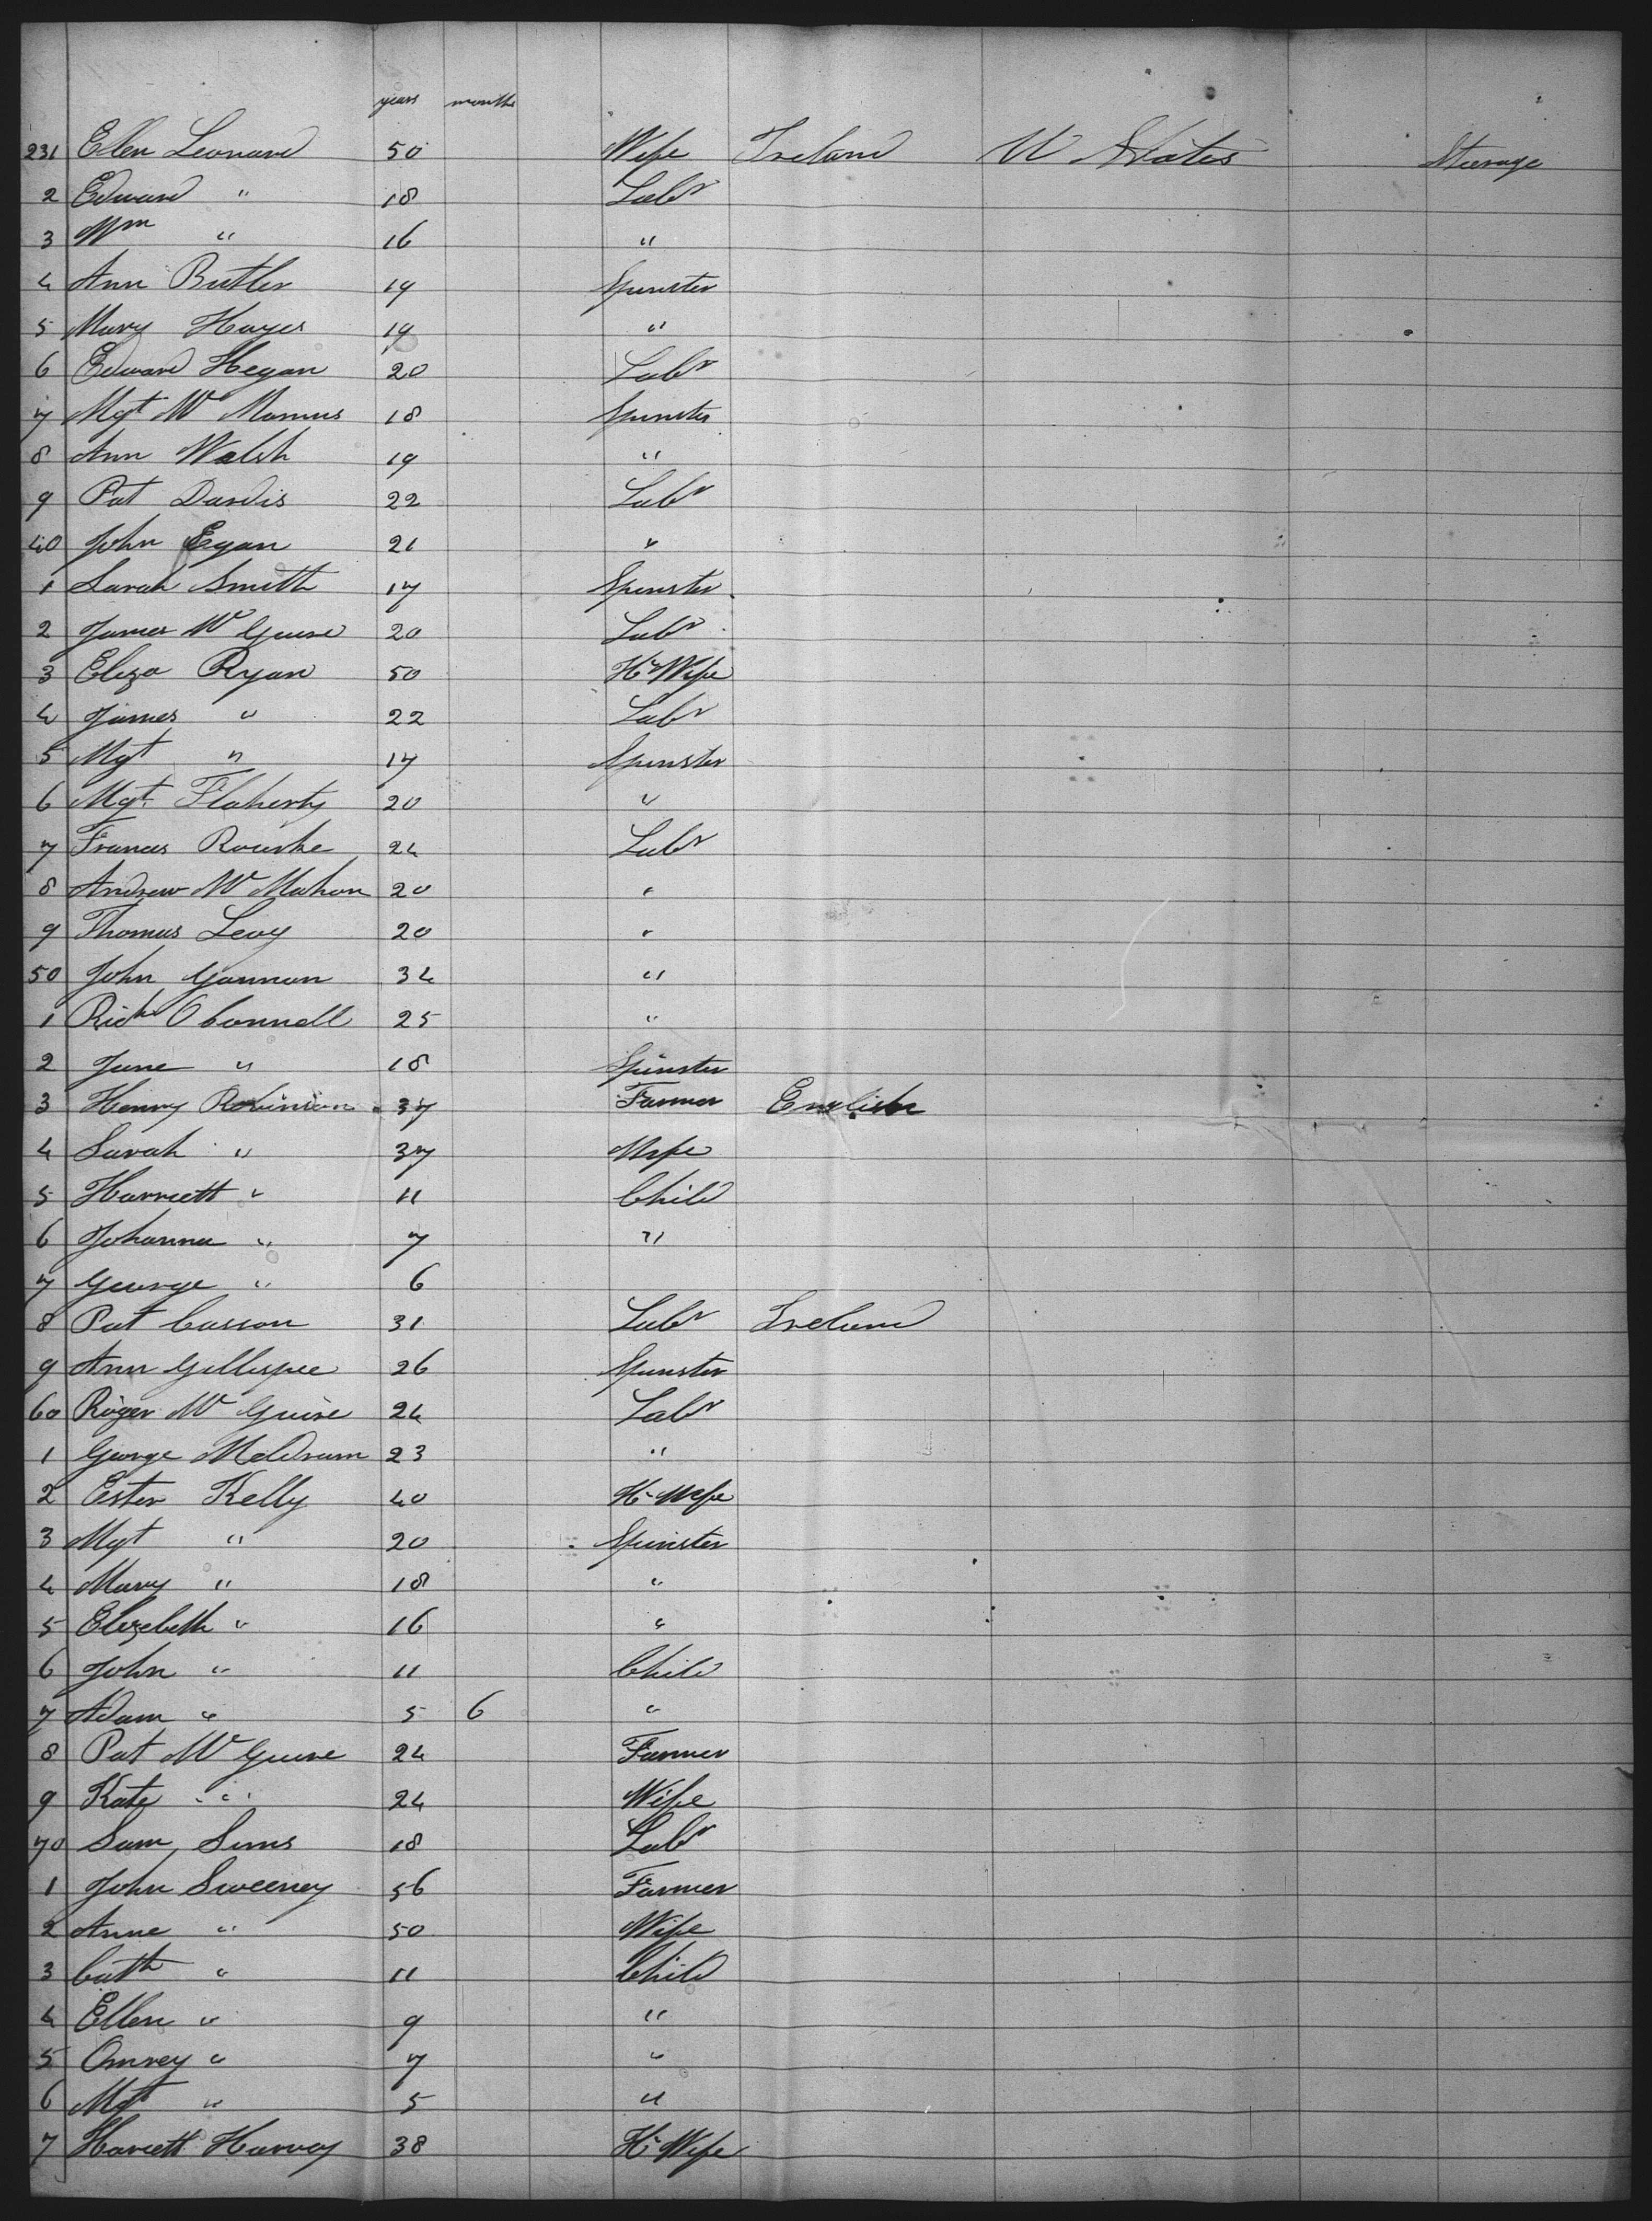 years months
231 Ellen Leonard 50 Wife Ireland U States Steerage
2 Edward " 18 Labr
3 Wm " 16 "
4 Ann Butler 19 Spinster
5 Mary Hayes 19 "
6 Edward Hegan 20 Labr
7 Mgt Mc Manus 18 Spinster
8 Ann Walsh 19 "
9 Pat Dardis 22 Labr
40 John Egan 21 "
1 Sarah Smith 17 Spinster
2 James Mc Guire 20 Labr
3 Eliza Ryan 50 H Wife
4 James " 22 Labr
5 Mgt " 17 Spinster
6 Mgt Flaherty 20 "
7 Francis Rourke 24 Labr
8 Andrew Mc Mahon 20 "
9 Thomas Levy 20 "
50 John Gannon 34 "
1 Richd O Connell 25 "
2 Jane " 18 Spinster
3 Henry Robinson 37 Farmer English
4 Sarah " 37 Wife
5 Harriett " 11 Child
6 Johanna " 7 "
7 George " 6
8 Pat Casson 31 Labr Ireland
9 Ann Gillespee 26 Spinster
60 Roger Mc Guire 24 Labr
1 George Meldrum 23 "
2 Ester Kelly 40 H Wife
3 Mgt " 20 Spinster
4 Mary " 18 "
5 Elizebeth " 16 "
6 John " 11 Child
7 Adam " 5 6 "
8 Pat Mc Guire 24 Farmer
9 Kate " 24 Wife
70 Sam Sims 18 Labr
1 John Sweeney 56 Farmer
2 Anne " 50 Wife
3 Cath " 11 Child
4 Ellen " 9 "
5 " 7 "
6 Mgt " 5 "
7 Hariett Harvey 38 H Wife